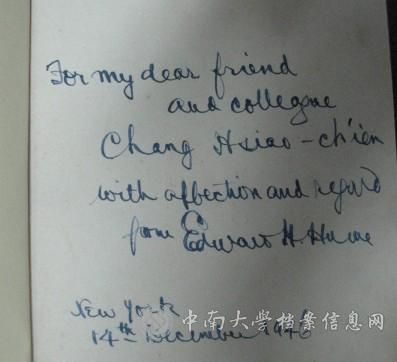 For my dear friend
and collegue
Chang Hsiao-ch'ien
with affection and regard
from Edward H. Hume
New York
14th December 1946
中南大學档案信息网